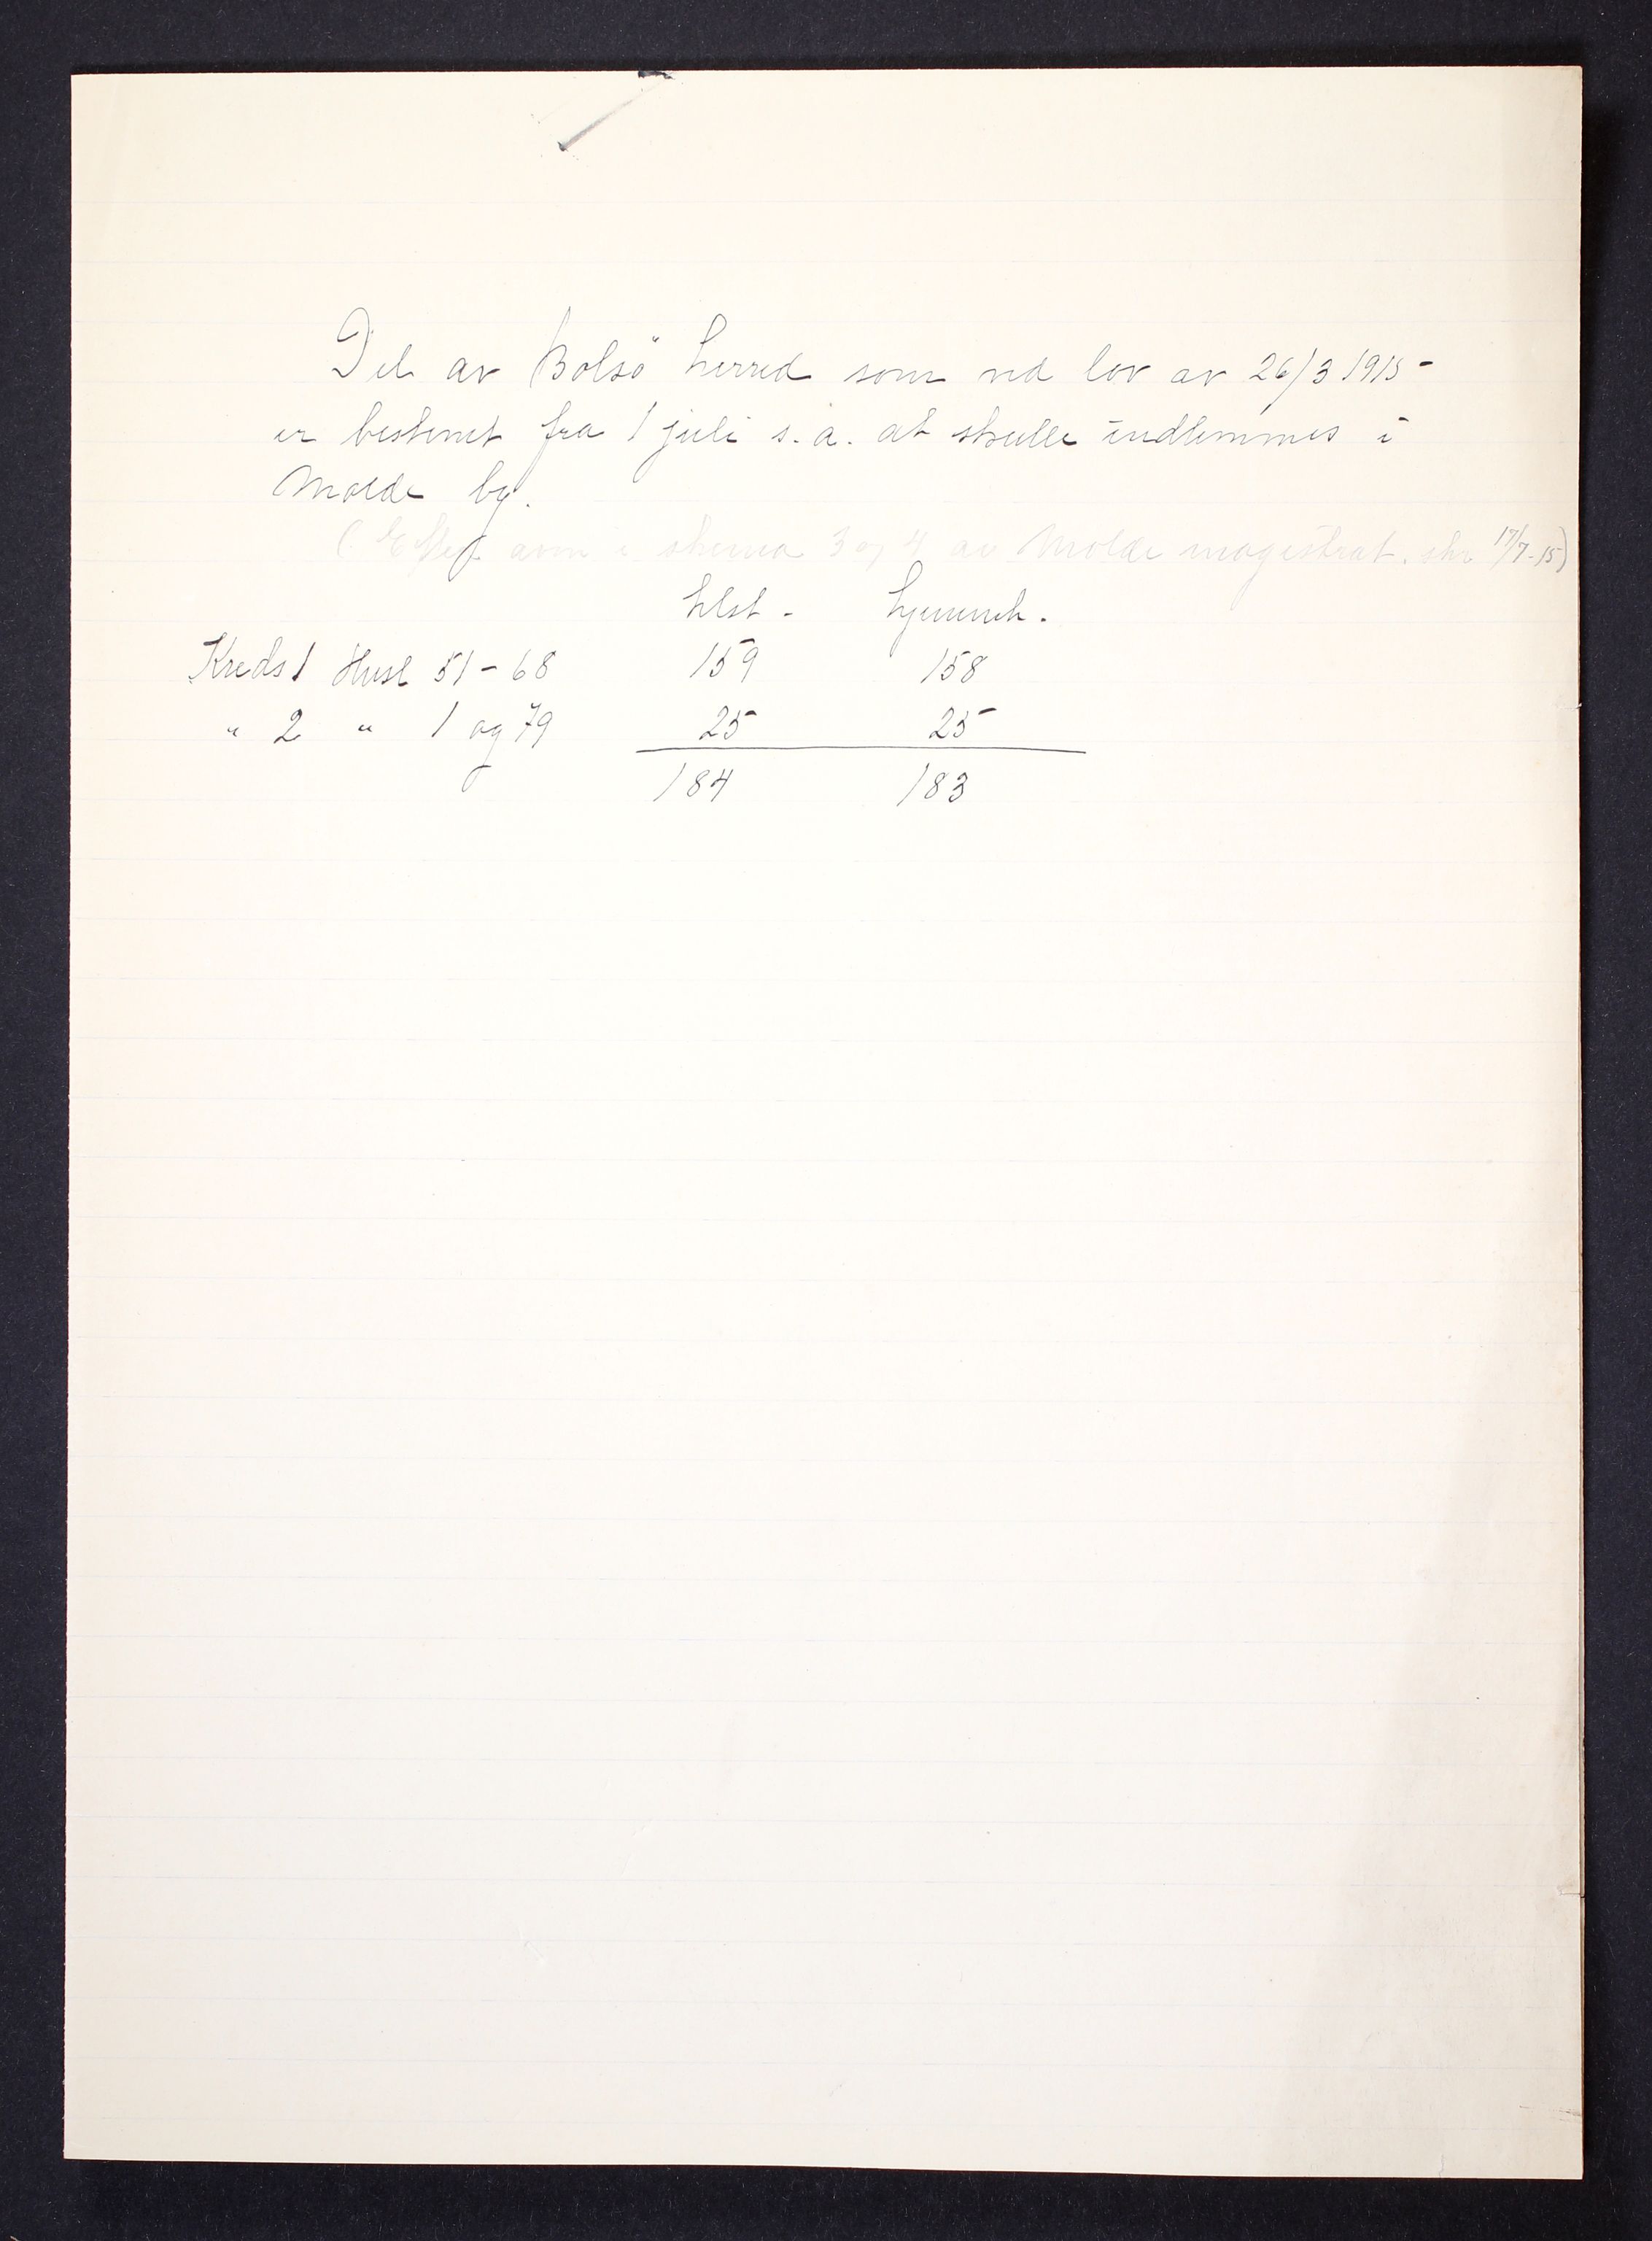 Del av Bolsö herred som ved lov av 26/3 1915
er bestemt fra 1 juli s. a. at skulle indlemmes i
Molde by.
(Efter anm i skema 3 og 4 av Molde magistrat. skr 17/7-15)
tilst. hjemmeh.
Kreds 1 Husl 51-68 159 158
" 2 " 1 og 79 25 25
184 183